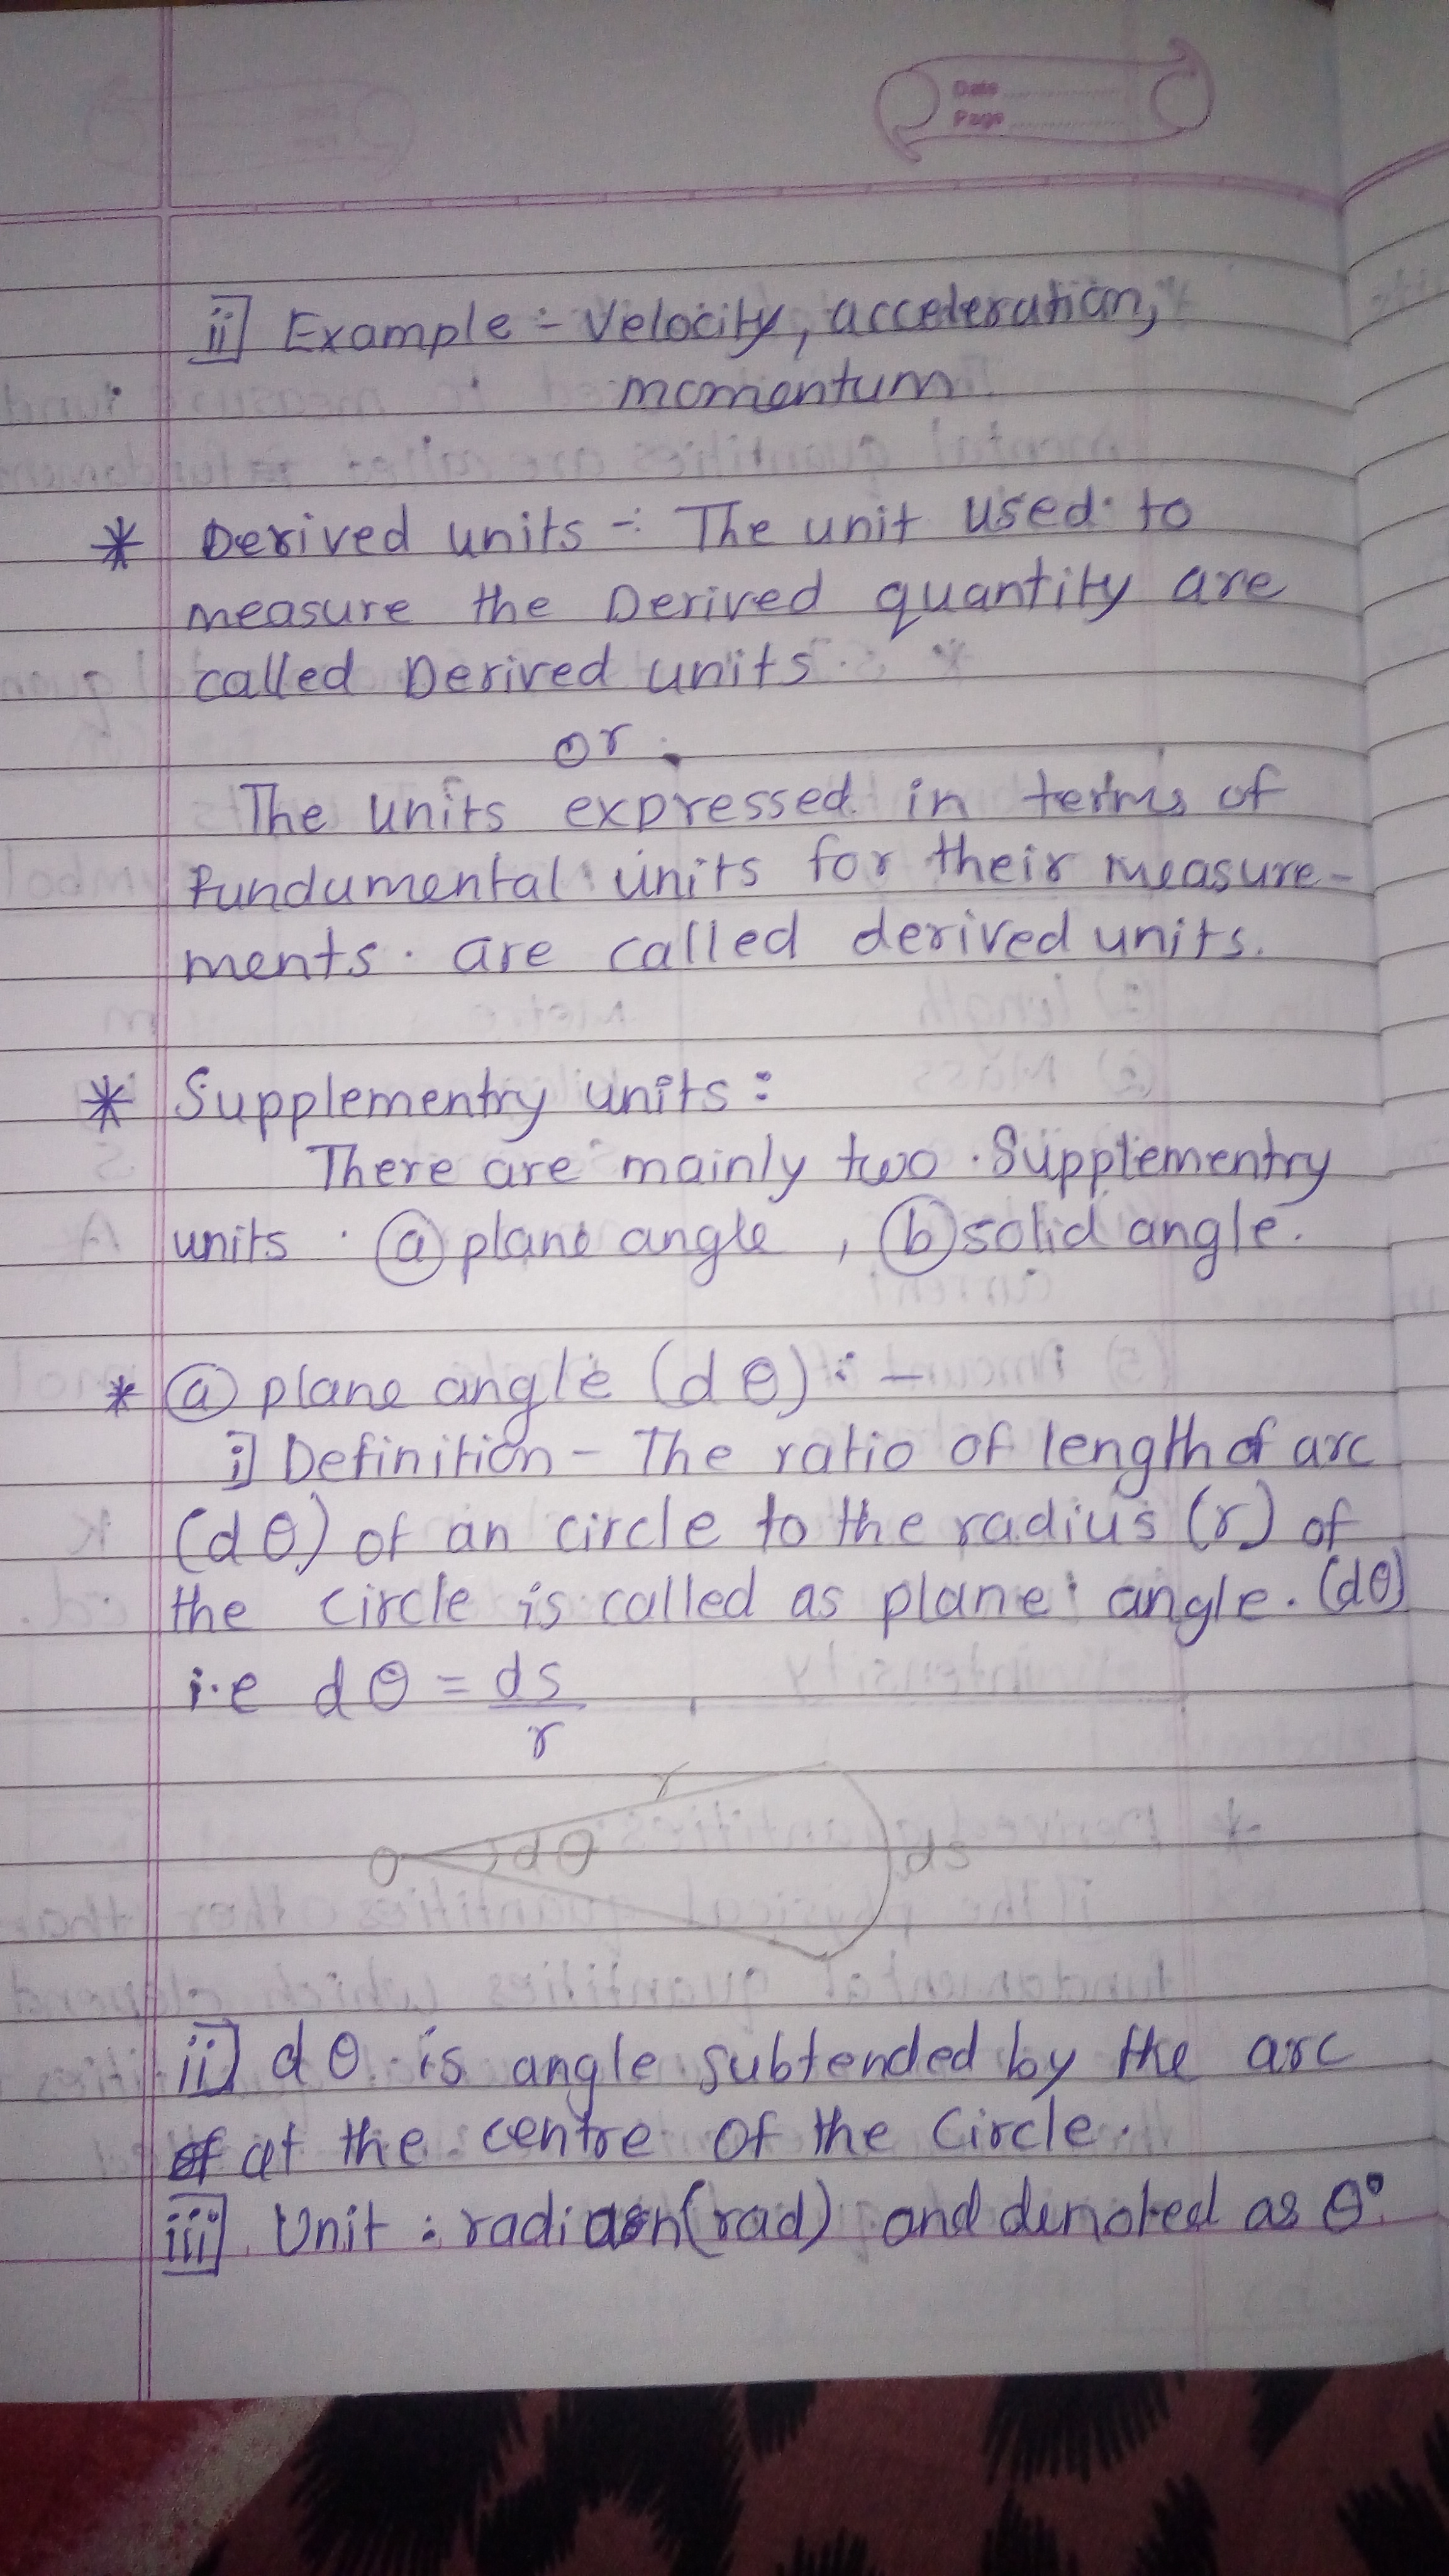 Date
Page
ii] Example :- Velocity, acceleration,
momentum.
* Derived units :- The unit used to
measure the Derived quantity are
called Derived units.
or
The units expressed in terms of
Fundumental units for their measure-
ments. are called derived units.
* Supplementry units :
There are mainly two Supplementry
units . (a) plane angle , (b) solid angle.
* (a) plane angle (dθ) : -
i] Definition - The ratio of length of arc
(dθ) of an circle to the radius (r) of
the circle is called as plane angle. (dθ)
i.e dθ = ds
r
r
O dθ ds
ii] dθ is angle subtended by the arc
at the centre of the Circle.
iii] Unit : radian (rad) and denoted as θ°